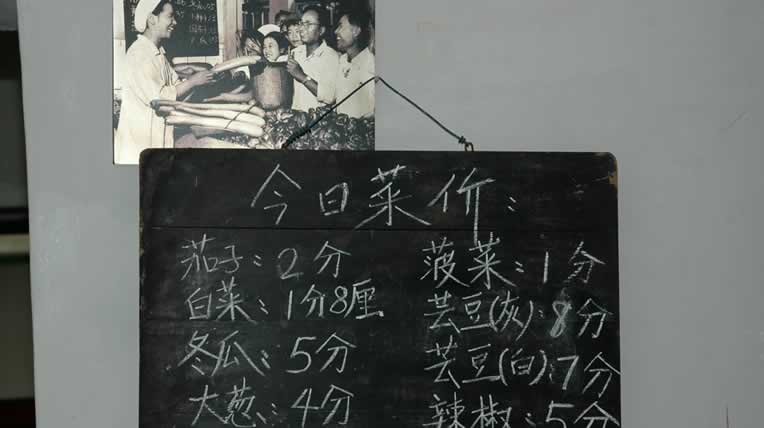 今日菜价:
茄子: 2分
白菜: 1分8厘
冬瓜: 5分
大葱: 4分
菠菜: 1分
芸豆(灰): 8分
芸豆(白): 7分
辣椒: 5分